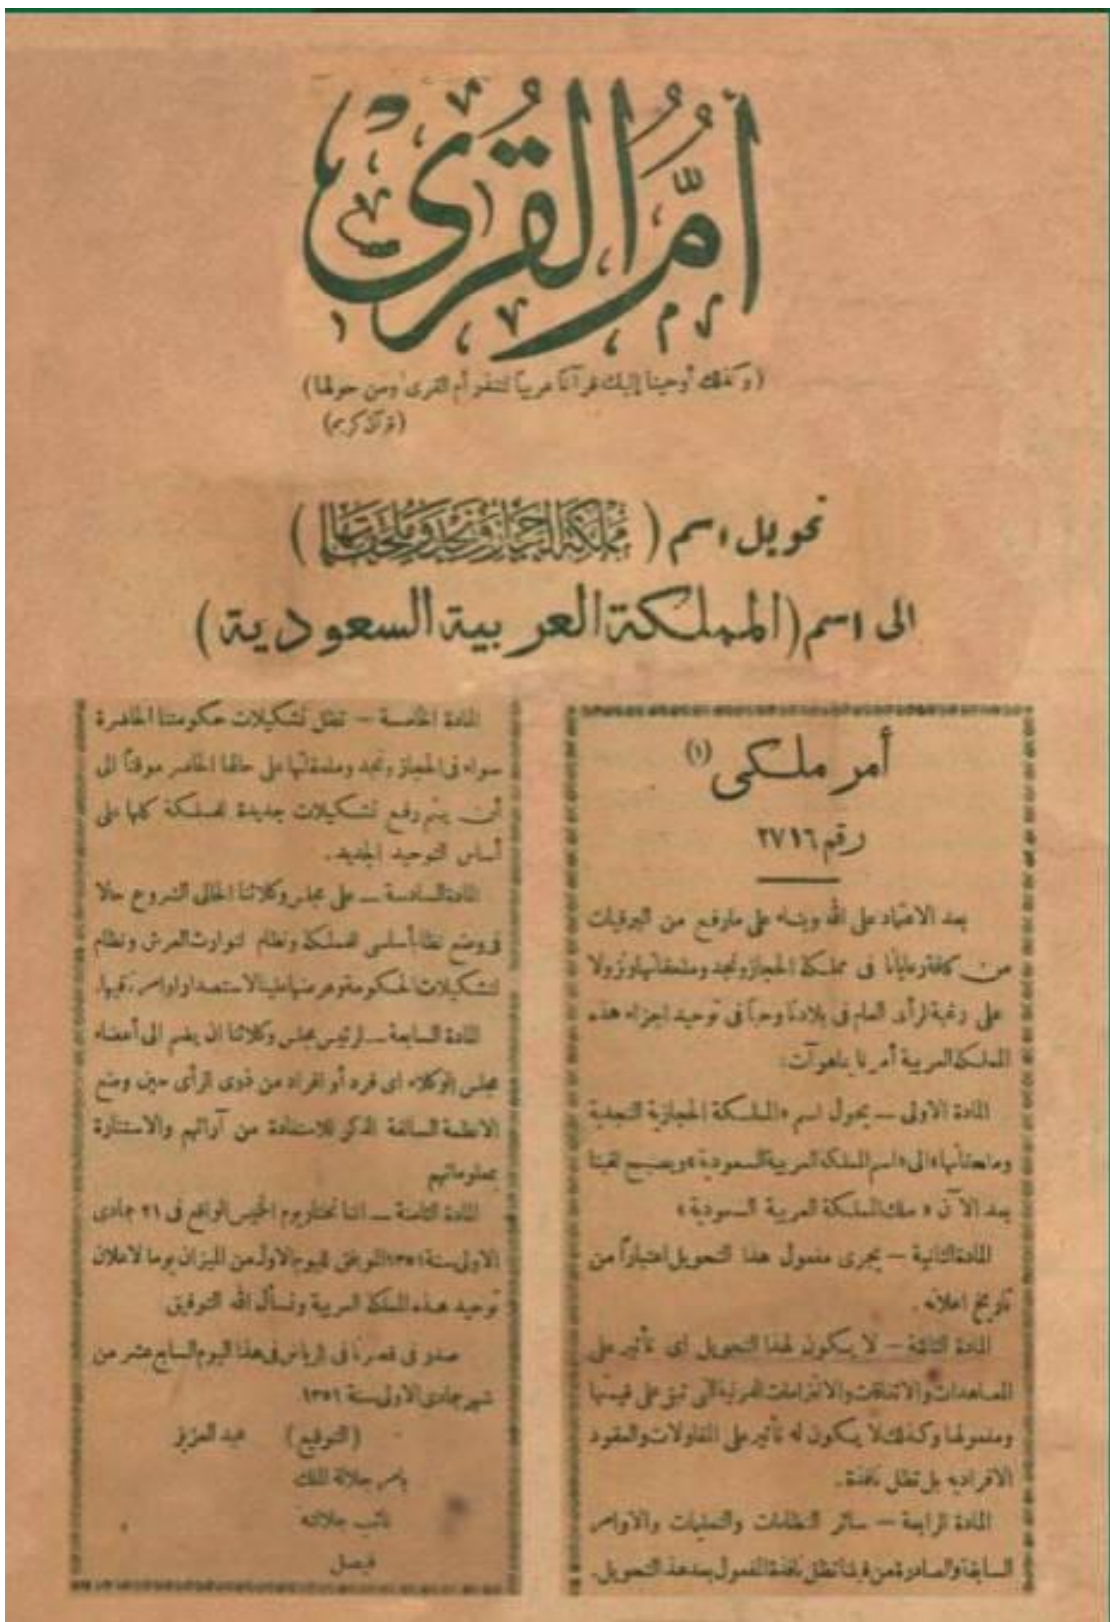 أم القرى
(وكذلك أوحينا إليك قرآنا عربياً لتنذر أم القرى ومن حولها)
(قرآن كريم)
تحويل اسم (مملكة الحجاز ونجد وملحقاتها)
الى اسم (المملكة العربية السعودية)
أمر ملكى (١)
رقم ٢٧١٦
بعد الاعتماد على الله وبناء على مارفع من البرقيات
من كافة رعايانا فى مملكة الحجاز ونجد وملحقاتها ونزولا
على رغبة الرأى العام فى بلادنا وحبا فى توحيد اجزاء هذه
المملكة العربية أمرنا بماهو آت:
المادة الاولى — يحول اسم «المملكة الحجازية النجدية
وملحقاتها» الى «اسم المملكة العربية السعودية» ويصبح لقبنا
بعد الآن «ملك المملكة العربية السعودية»
المادة الثانية — يجرى مفعول هذا التحويل اعتباراً من
تاريخ اعلانه.
المادة الثالثة — لا يكون لهذا التحويل اى تأثير على
المعاهدات والاتفاقات والالتزامات الدولية التى تبقى على قيمتها
ومفعولها وكذلك لا يكون له تأثير على المقاولات والعقود
الافرادية بل تظل نافذة.
المادة الرابعة — سائر النظامات والتعليمات والاوامر
السابقة والصادرة من قبلنا تظل نافذة المفعول بعد هذا التحويل.
المادة الخامسة — تظل تشكيلات حكومتنا الحاضرة
سواء فى الحجاز ونجد وملحقاتها على حالها الحاضر موقتاً الى
أن يتم وضع تشكيلات جديدة للمملكة كلها على
أساس التوحيد الجديد.
المادة السادسة — على مجلس وكلائنا الحالى الشروع حالا
فى وضع نظام أساسى للمملكة ونظام لتوارث العرش ونظام
لتشكيلات الحكومة وعرضها علينا لاستصدار اوامرنا فيها.
المادة السابعة — لرئيس مجلس وكلائنا ان يضم الى أعضاء
مجلس الوكلاء اى فرد أو افراد من ذوى الرأى حين وضع
الانظمة السالفة الذكر للاستفادة من آرائهم والاستنارة
بمعلوماتهم
المادة الثامنة — اننا نختار يوم الخميس الواقع فى ٢١ جمادى
الاولى سنة ١٣٥١ الموافق لليوم الاول من الميزان يوما لاعلان
توحيد هذه المملكة العربية ونسأل الله التوفيق
صدر فى قصرنا فى الرياض فى هذا اليوم السابع عشر من
شهر جمادى الاولى سنة ١٣٥١.
(التوقيع) عبد العزيز
بامر جلالة الملك
نائب جلالته
فيصل